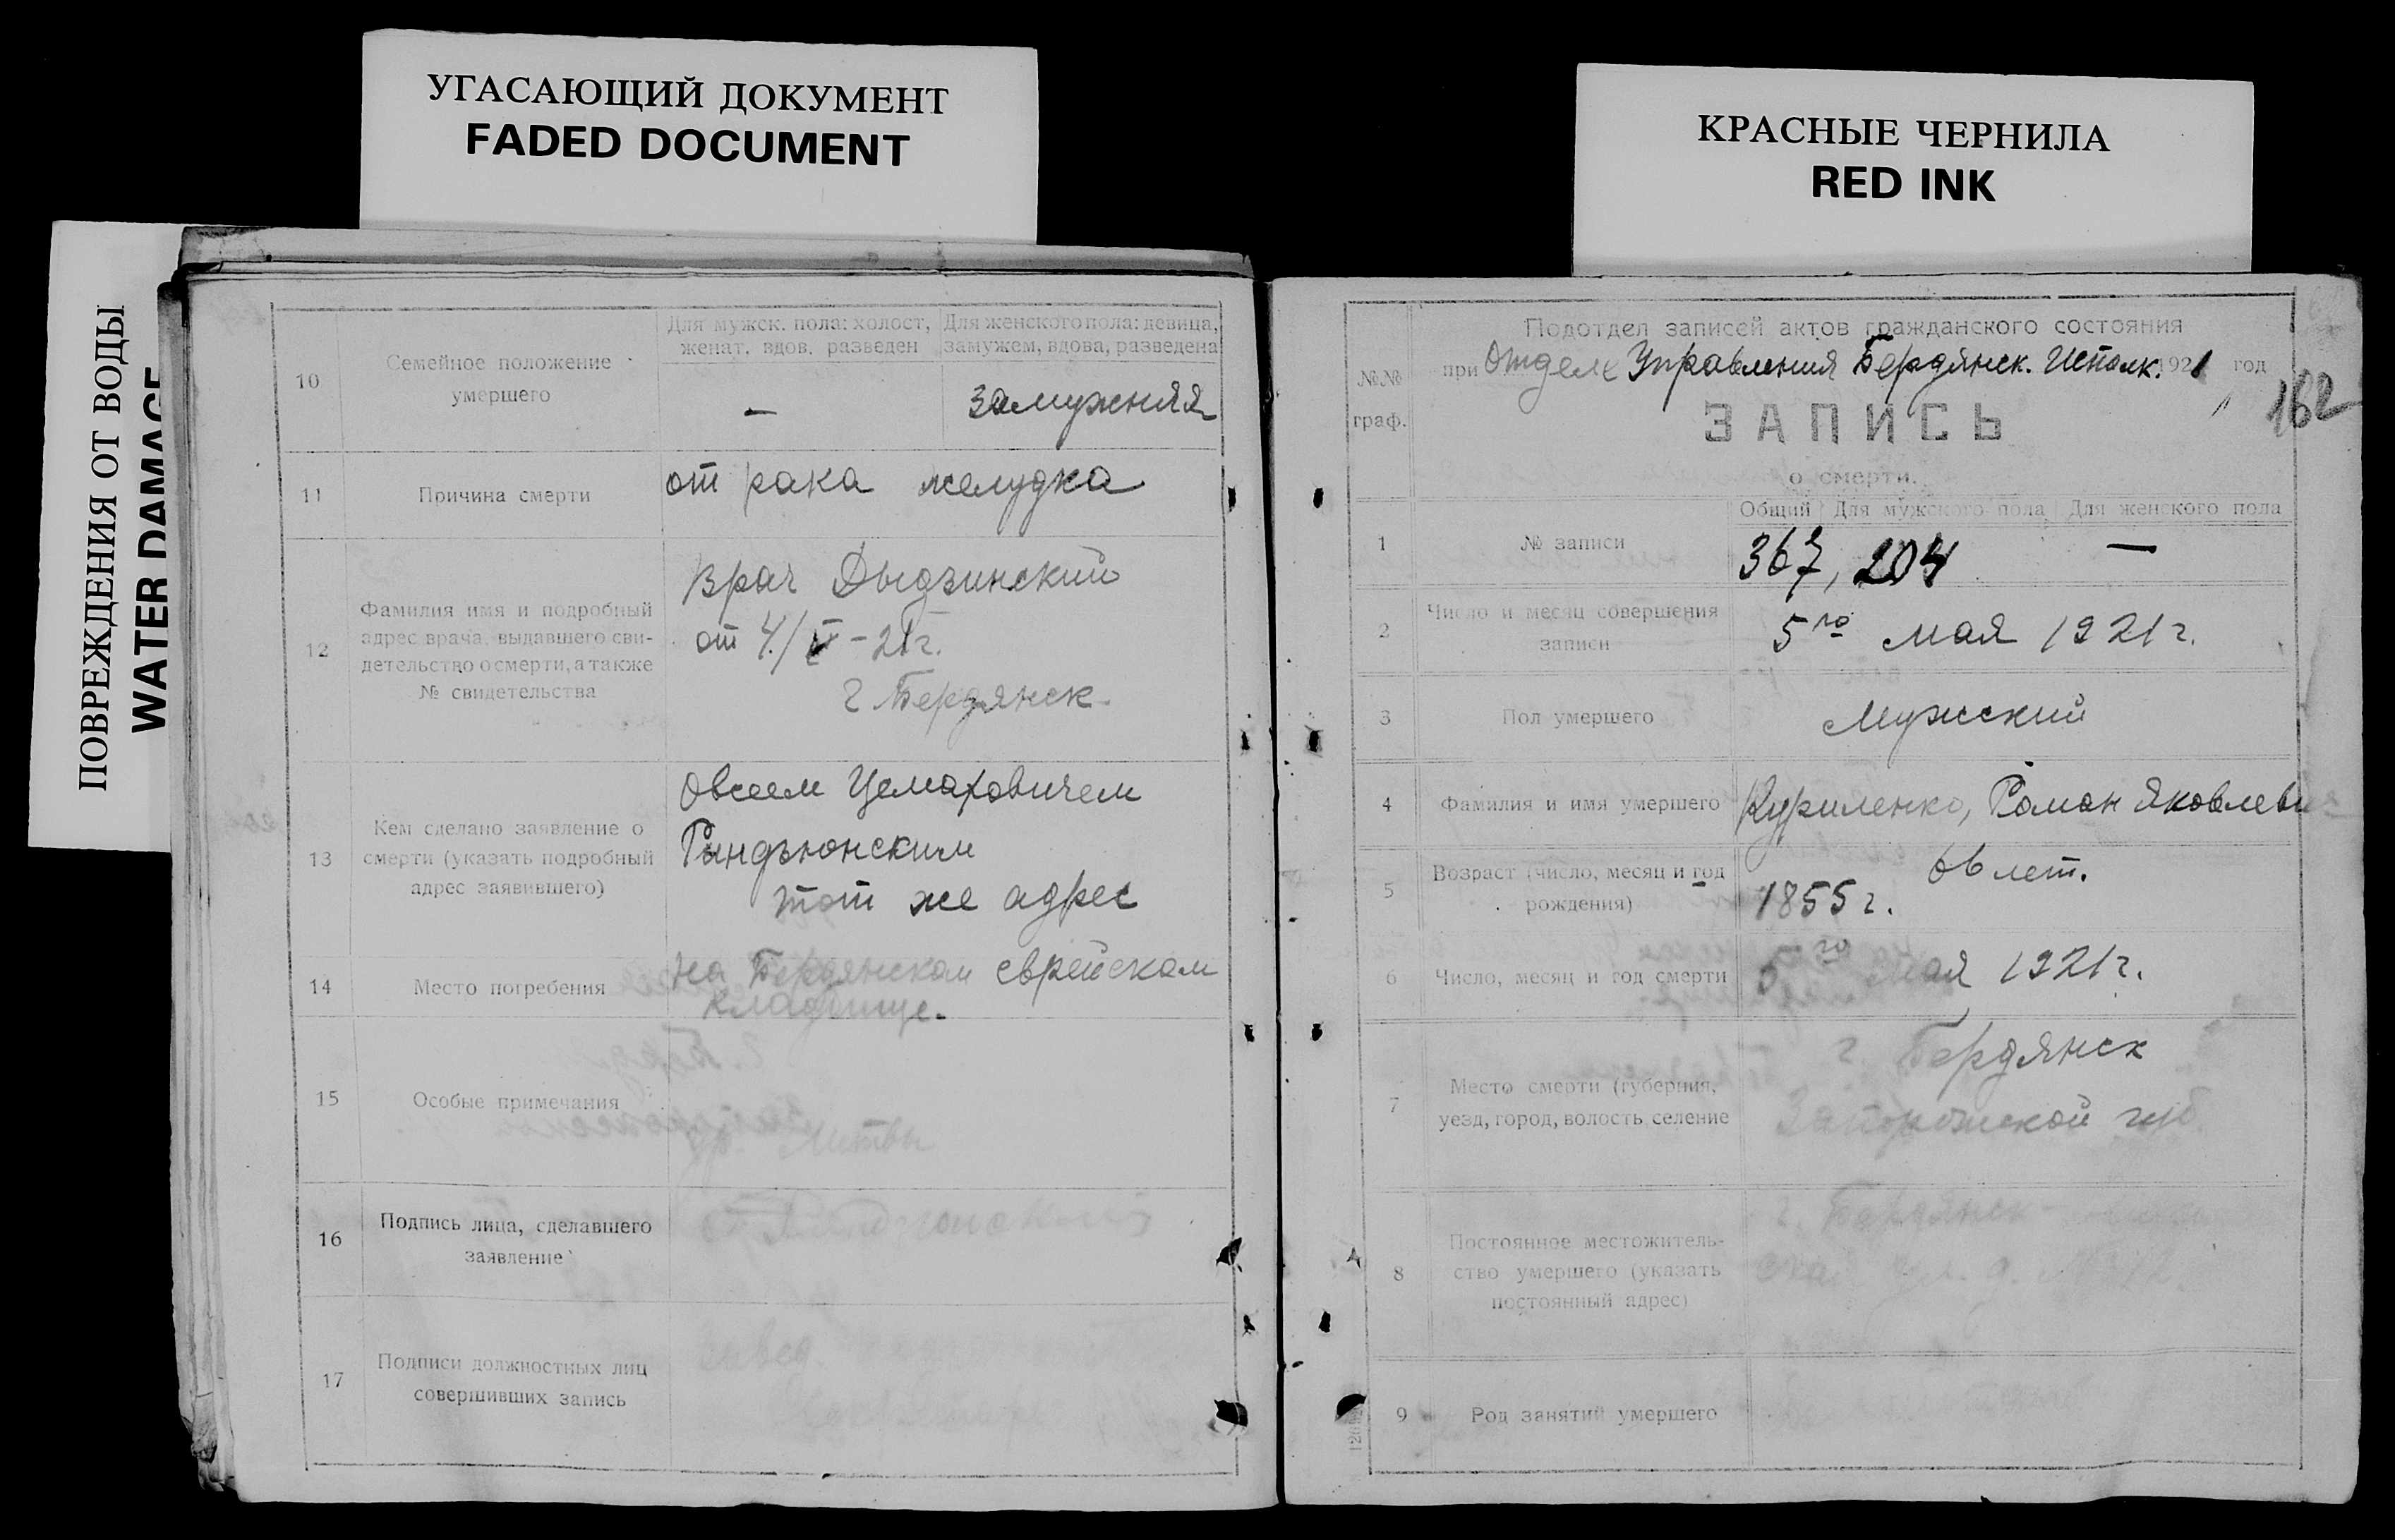 УГАСАЮЩИЙ ДОКУМЕНТ
FADED DOCUMENT
КРАСНЫЕ ЧЕРНИЛА
RED INK
ПОВРЕЖДЕНИЯ ОТ ВОДЫ
WATER DAMAGE
10
Семейное положение
умершего
Для мужск. пола: холост,
женат, вдов, разведен
Для женского пола: девица,
замужем, вдова, разведена
—
замужняя
11
Причина смерти
от рака желудка
12
Фамилия имя и подробный
адрес врача, выдавшего сви-
детельство о смерти, а также
№ свидетельства
Врач Дыдзинский
от 4/V – 21 г.
г. Бердянск.
13
Кем сделано заявление о
смерти (указать подробный
адрес заявившего)
Овсеем Цемаховичем
Рындзюнским
тот же адрес
14
Место погребения
На Бердянском еврейском
кладбище.
15
Особые примечания
гр. Литвы
16
Подпись лица, сделавшего
заявление
17
Подписи должностных лиц
совершивших запись
№№
граф.
Подотдел записей актов гражданского состояния
при Отделе Управления Бердянск. Исполк. 1921 год
162
ЗАПИСЬ
о смерти.
Общий
Для мужского пола
Для женского пола
1
№ записи
367, 204 —
2
Число и месяц совершения
записи
5го мая 1921 г.
3
Пол умершего
Мужский
4
Фамилия и имя умершего
Куриленко, Роман Яковлевич
5
Возраст (число, месяц и год
рождения)
66 лет.
1855 г.
6
Число, месяц и год смерти
5го мая 1921 г.
7
Место смерти (губерния,
уезд, город, волость селение
г. Бердянск
Запорожской губ.
8
Постоянное местожитель-
ство умершего (указать
постоянный адрес)
г. Бердянск
ская ул. д.
9
Род занятий умершего